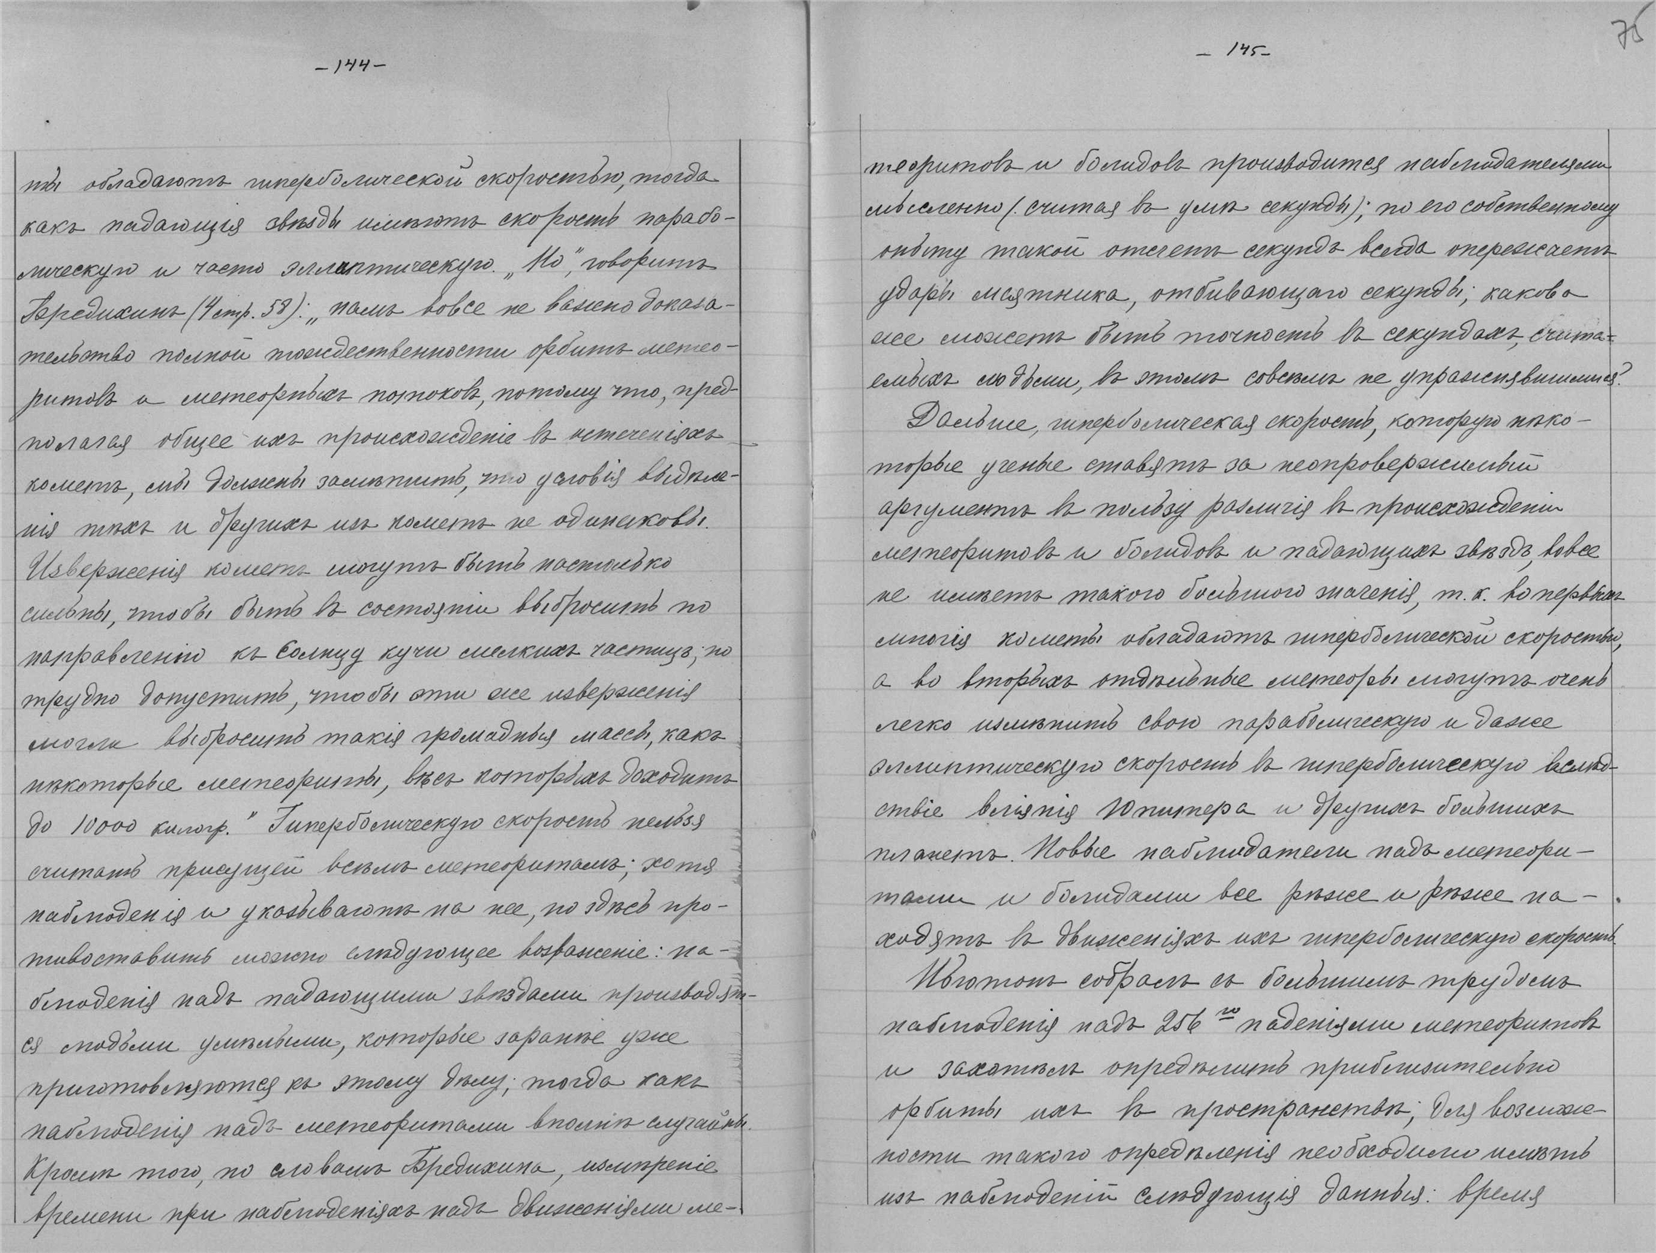 -144-
ты обладаютъ гиперболической скоростью, тогда
какъ падающія звѣзды имѣютъ скорость парабо-
лическую и часто эллиптическую. „Но", говоритъ
Бредихинъ (4 стр. 58): „намъ вовсе не важно доказа-
тельство полной тождественности орбитъ метео-
ритовъ и метеорныхъ потоковъ, потому что, пред-
полагая общее ихъ происхожденіе въ истеченіяхъ
кометъ, мы должны замѣтить, что условія выдѣле-
нія тѣхъ и другихъ изъ кометъ не одинаковы.
Изверженія кометъ могутъ быть настолько
сильны, чтобы быть въ состояніи выбросить по
направленію къ Солнцу кучи мелкихъ частицъ; но
трудно допустить, чтобы эти же изверженія
могли выбросить такія громадныя массы, какъ
нѣкоторые метеориты, вѣсъ которыхъ доходитъ
до 10000 килогр." Гиперболическую скорость нельзя
считать присущей всѣмъ метеоритамъ; хотя
наблюденія и указываютъ на нее, но здѣсь про-
тивоставить можно слѣдующее возраженіе: на-
блюденія надъ падающими звѣздами производят-
ся людьми умѣлыми, которые заранѣе уже
приготовляются къ этому дѣлу; тогда какъ
наблюденія надъ метеоритами вполнѣ случайны.
Кромѣ того, по словамъ Бредихина, измѣреніе
времени при наблюденіяхъ надъ движеніями ме-
-145-
75
теоритовъ и болидовъ производится наблюдателями
мысленно (считая въ умѣ секунды); по его собственному
опыту такой отсчетъ секундъ всегда опережаетъ
удары маятника, отбивающаго секунды; какова
же можетъ быть точность въ секундахъ, счита-
емыхъ людьми, въ этомъ совсѣмъ не упражнявшимися?
Дальше, гиперболическая скорость, которую нѣко-
торые ученые ставятъ за неопровержимый
аргументъ въ пользу различія въ происхожденіи
метеоритовъ и болидовъ и падающихъ звѣздъ, вовсе
не имѣетъ такого большого значенія, т. к. во первыхъ
многія кометы обладаютъ гиперболической скоростью,
а во вторыхъ отдѣльные метеоры могутъ очень
легко измѣнить свою параболическую и даже
эллиптическую скорость въ гиперболическую вслѣд-
ствіе вліянія Юпитера и другихъ большихъ
планетъ. Новые наблюдатели надъ метеори-
тами и болидами все рѣже и рѣже на-
ходятъ въ движеніяхъ ихъ гиперболическую скорость.
Ньютонъ собралъ съ большимъ трудомъ
наблюденія надъ 256ю паденіями метеоритовъ
и захотѣлъ опредѣлить приблизительно
орбиты ихъ въ пространствѣ; для возмож-
ности такого опредѣленія необходимо имѣть
изъ наблюденій слѣдующія данныя: время